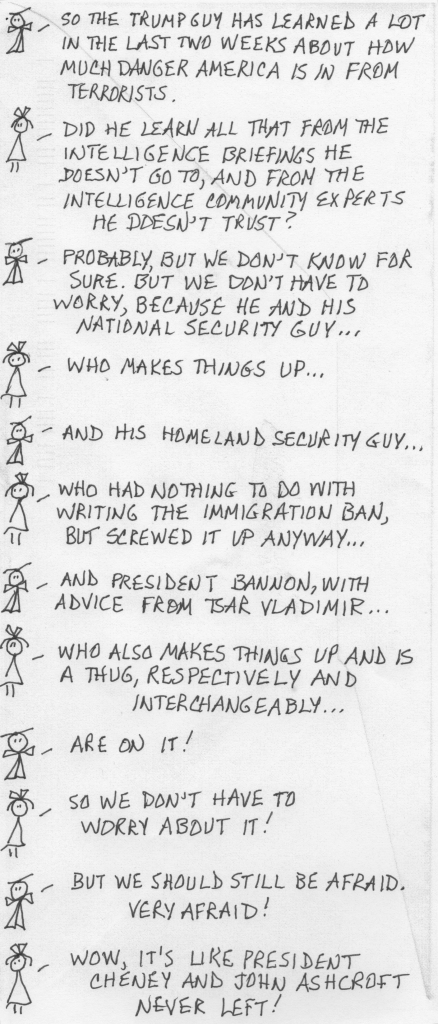 SO THE TRUMP GUY HAS LEARNED A LOT
IN THE LAST TWO WEEKS ABOUT HOW
MUCH DANGER AMERICA IS IN FROM
TERRORISTS.
DID HE LEARN ALL THAT FROM THE
INTELLIGENCE BRIEFINGS HE
DOESN'T GO TO, AND FROM THE
INTELLIGENCE COMMUNITY EXPERTS
HE DOESN'T TRUST?
PROBABLY, BUT WE DON'T KNOW FOR
SURE. BUT WE DON'T HAVE TO
WORRY, BECAUSE HE AND HIS
NATIONAL SECURITY GUY...
WHO MAKES THINGS UP...
AND HIS HOMELAND SECURITY GUY...
WHO HAD NOTHING TO DO WITH
WRITING THE IMMIGRATION BAN,
BUT SCREWED IT UP ANYWAY...
AND PRESIDENT BANNON, WITH
ADVICE FROM TSAR VLADIMIR...
WHO ALSO MAKES THINGS UP AND IS
A THUG, RESPECTIVELY AND
INTERCHANGEABLY...
ARE ON IT!
SO WE DON'T HAVE TO
WORRY ABOUT IT!
BUT WE SHOULD STILL BE AFRAID.
VERY AFRAID!
WOW, IT'S LIKE PRESIDENT
CHENEY AND JOHN ASHCROFT
NEVER LEFT!